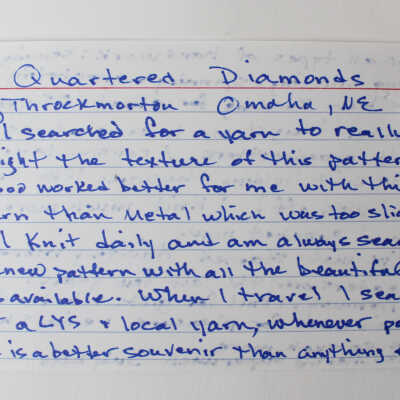 Quartered Diamonds
Throckmorton Omaha, NE
I searched for a yarn to really
ight the texture of this patter
oo worked better for me with thi
rn than Metal which was too slic
I knit daily and am always sear
new pattern with all the beautiful
available. When I travel I sea
a LYS & local yarn, whenever po
is a better souvenir than anything